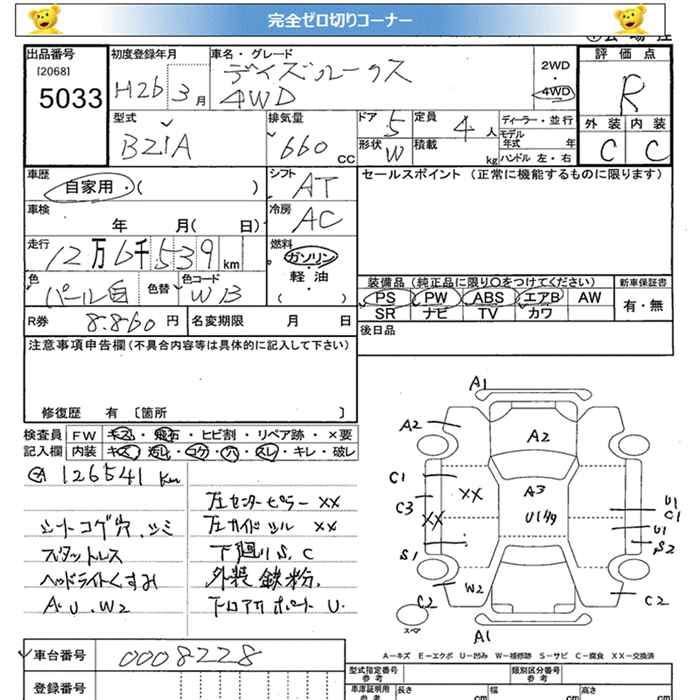 完全ゼロ切りコーナー
出品番号
[2068]
5033
初度登録年月
H26 3 月
車名・グレード
デイズルークス
4WD
2WD
・
4WD
評価点
R
外装 内装
C C
型式
B21A
排気量
660 CC
ドア 5
定員 4 人
形状 W
積載 kg
ディーラー・並行
モデル
年式 年
ハンドル 左・右
車歴
自家用・( )
シフト AT
セールスポイント（正常に機能するものに限ります）
車検
年 月( 日)
冷房 AC
走行
12万6千539 km
燃料
ガソリン
・
軽・油
( )
色 パール白
色替
色コード WB
装備品（純正品に限り○をつけてください）
新車保証書
PS PW ABS エアB AW
SR ナビ TV カワ
有・無
R券 8.860 円
名変期限 月 日
後日品
注意事項申告欄（不具合内容等は具体的に記入して下さい）
修復歴 有〔箇所 〕
検査員 FW キズ・飛石・ヒビ割・リペア跡・×要
記入欄 内装 キズ・汚れ・コゲ・穴・スレ・キレ・破レ
126541 km
左センターピラー XX
シートコゲ穴、シミ
左サイドシル XX
スタットレス
下廻りS、C
ヘッドライトくすみ
外装鉄粉.
A、U、W2
下ロアサポート U.
A1
A2
A2
C1
XX
A3
C3
XX
U1多
U1
C1
U1
S1
S2
W2
C2
C2
スペア
A1
A－キズ E－エクボ U－凹み W－補修跡 S－サビ C－腐食 XX－交換済
車台番号
0008228
登録番号
型式指定番号
参考
類別区分番号
参考
車庫証明用
参考
長さ cm
幅 cm
高さ cm